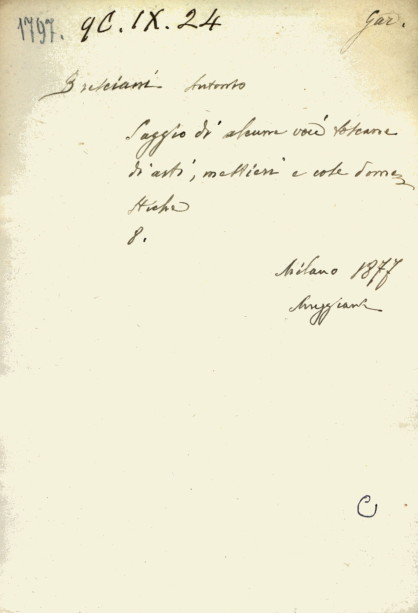 1797. 9C.IX.24 Gar.
Bresciani Antonio
Saggio di alcune voci toscane
di arti, mestieri e cose dome
stiche
8.
Milano 1877
Muggiani
C